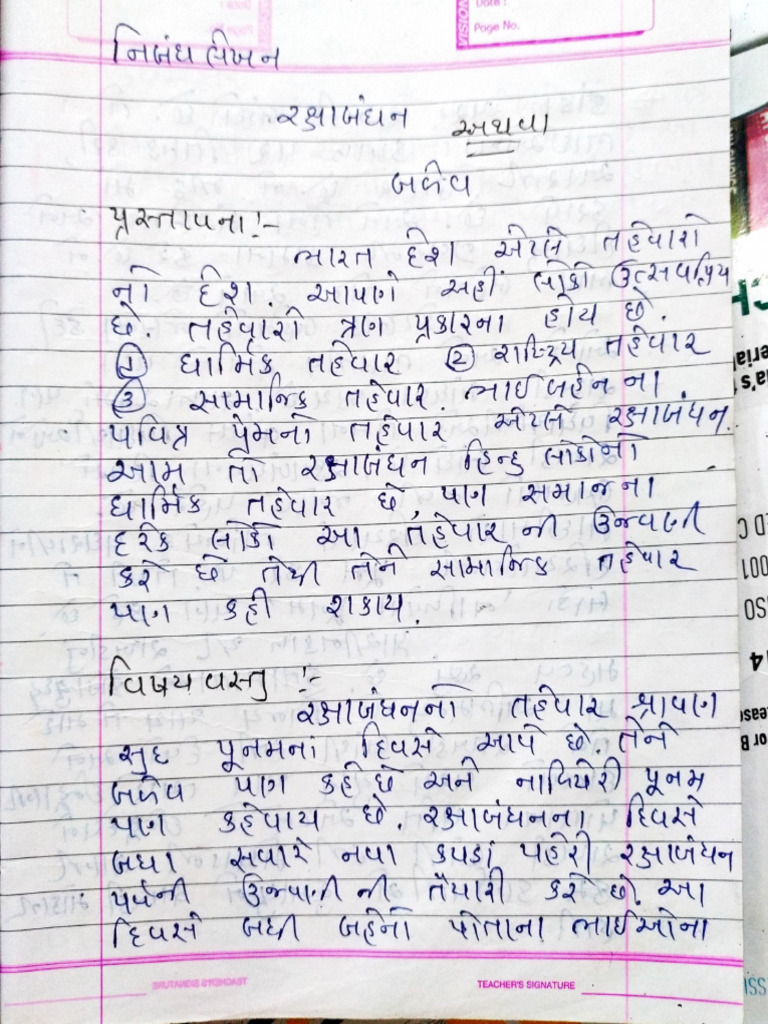 Date :
Page No.
VISION
નિબંધ લેખન
રક્ષાબંધન અથવા
બળેવ
પ્રસ્તાપના :-
ભારત દેશ એટલે તહેવારો
નો દેશ આપણે અહીં લોકો ઉત્સવપ્રિય
છે. તહેવારો ત્રણ પ્રકારના હોય છે.
① ધાર્મિક તહેવાર ② રાષ્ટ્રિય તહેવાર
③ સામાજિક તહેવાર. ભાઈ બહેન ના
પવિત્ર પ્રેમનો તહેવાર એટલે રક્ષાબંધન.
આમ તો રક્ષાબંધન હિન્દુ લોકોનો
ધાર્મિક તહેવાર છે, પણ સમાજના
દરેક લોકો આ તહેવાર ની ઉજવણી
કરે છે તેથી તેને સામાજિક તહેવાર
પણ કહી શકાય.
વિષયવસ્તુ :-
રક્ષાબંધનનો તહેવાર શ્રાવણ
સુદ પૂનમનાં દિવસે આવે છે. તેને
બળેવ પણ કહે છે અને નાળિયેરી પૂનમ
પણ કહેવાય છે. રક્ષાબંધનના દિવસે
બધા સવારે નવા કપડાં પહેરી રક્ષાબંધન
પર્વની ઉજવણી ની તૈયારી કરે છે. આ
દિવસે બધી બહેનો પોતાના ભાઈઓના
TEACHER'S SIGNATURE